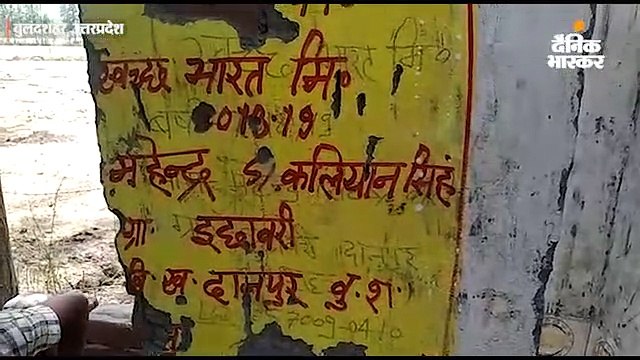 बुलंदशहर, उत्तरप्रदेश
दैनिक
भास्कर
स्वच्छ भारत मि॰
2018-19
महेन्द्र S/. कलियान सिहं
ग्रा॰ इच्छावरी
वि॰ ख॰ दानपुर वु॰ श॰
7009-04/0